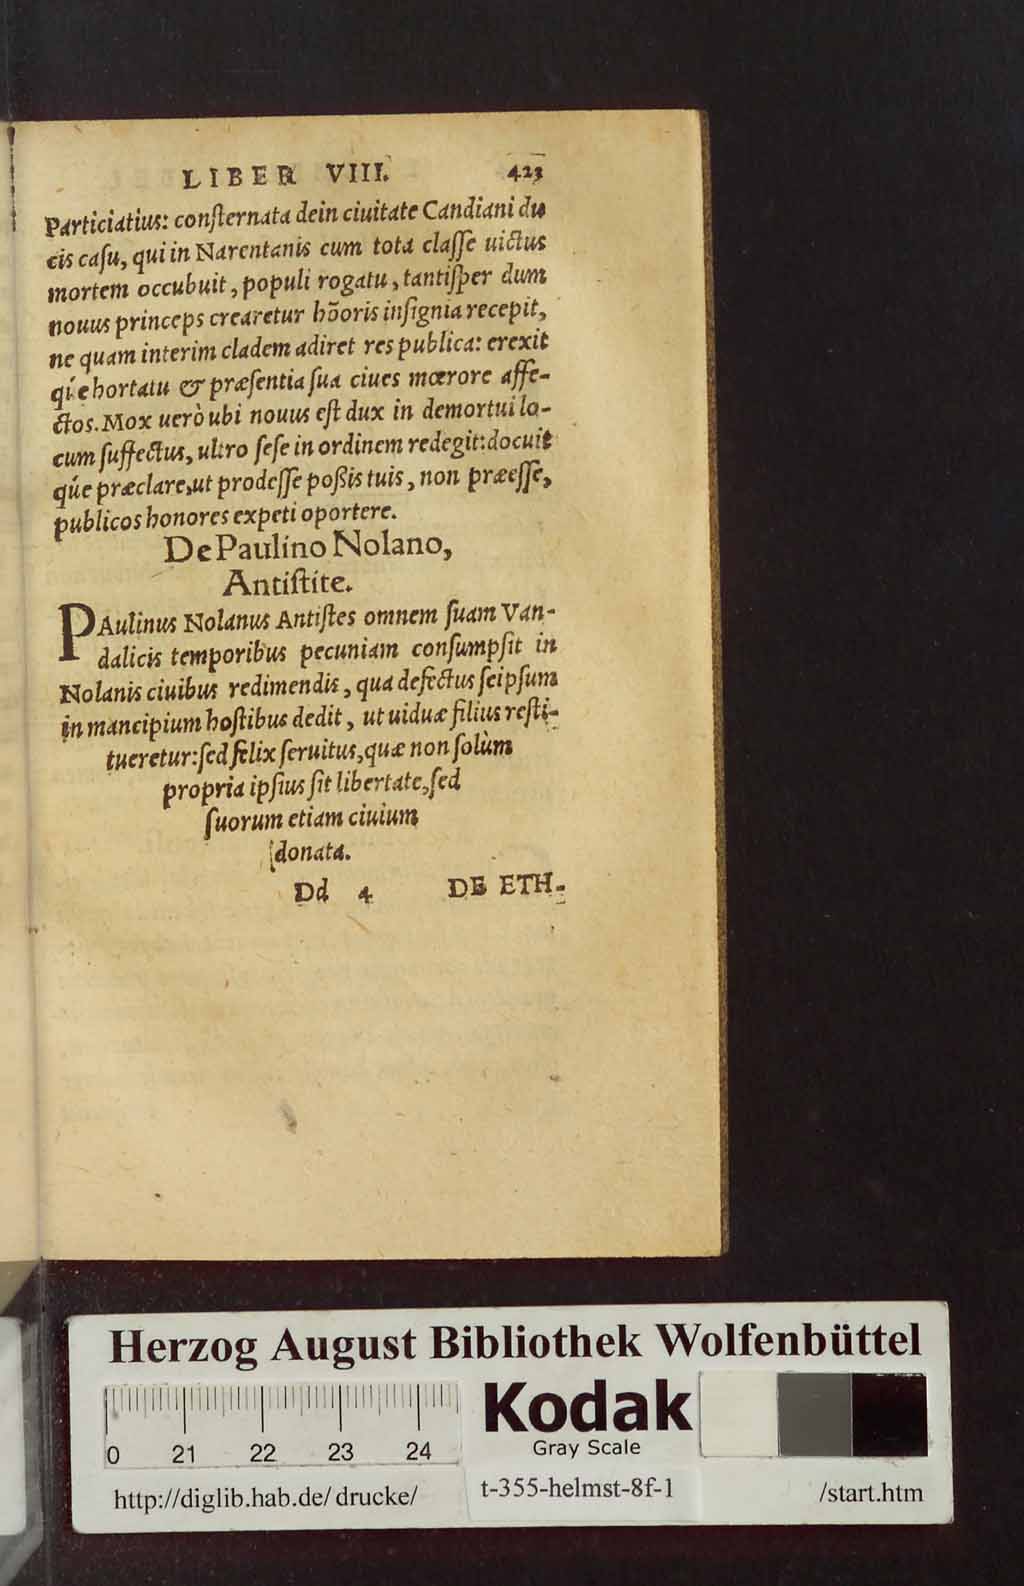 LIBER VIII. 423
Particiatius: conſternata dein ciuitate Candiani du
cis caſu, qui in Narentanis cum tota claſſe uictus
mortem occubuit, populi rogatu, tantiſper dum
nouus princeps crearetur hõoris inſignia recepit,
ne quam interim cladem adiret res publica: erexit
q́ue hortatu & præſentia ſua ciues mœrore affe-
ctos. Mox uerò ubi nouus eſt dux in demortui lo-
cum ſuffectus, ultro ſeſe in ordinem redegit: docuit
q́ue præclare, ut prodeſſe poßis tuis, non præeſſe,
publicos honores expeti oportere.
De Paulino Nolano,
Antiſtite.
PAulinus Nolanus Antiſtes omnem ſuam Van-
dalicis temporibus pecuniam conſumpſit in
Nolanis ciuibus redimendis, qua defectus ſeipſum
in mancipium hoſtibus dedit, ut uiduæ filius reſti-
tueretur: ſed felix ſeruitus, quæ non ſolùm
propria ipſius ſit libertate, ſed
ſuorum etiam ciuium
donata.
Dd 4 DE ETH-
Herzog August Bibliothek Wolfenbüttel
0 21 22 23 24
Kodak
Gray Scale
http://diglib.hab.de/drucke/ t-355-helmst-8f-1 /start.htm